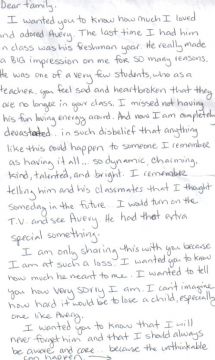 Dear family,
I wanted you to know how much I loved
and adored Avery. The last time I had him
in class was his freshman year. He really made
a BIG impression on me for so many reasons.
He was one of a very few students, who as a
teacher, you feel sad and heartbroken that they
are no longer in your class. I missed not having
his fun loving energy around. And now I am completely
devastated... in such disbelief that anything
like this could happen to someone I remember
as having it all... so dynamic, charming,
kind, talented, and bright. I remember
telling him and his classmates that I thought
someday in the future I would turn on the
T.V. and see Avery. He had that extra
special something.
I am only sharing this with you because
I am at such a loss. I wanted you to know
how much he meant to me. I wanted to tell
you how very sorry I am. I cant imagine
how hard it would be to lose a child, especially
one like Avery.
I wanted you to know that I will
never forget him and that I should always
be aware and care... because the unthinkable
can happen.